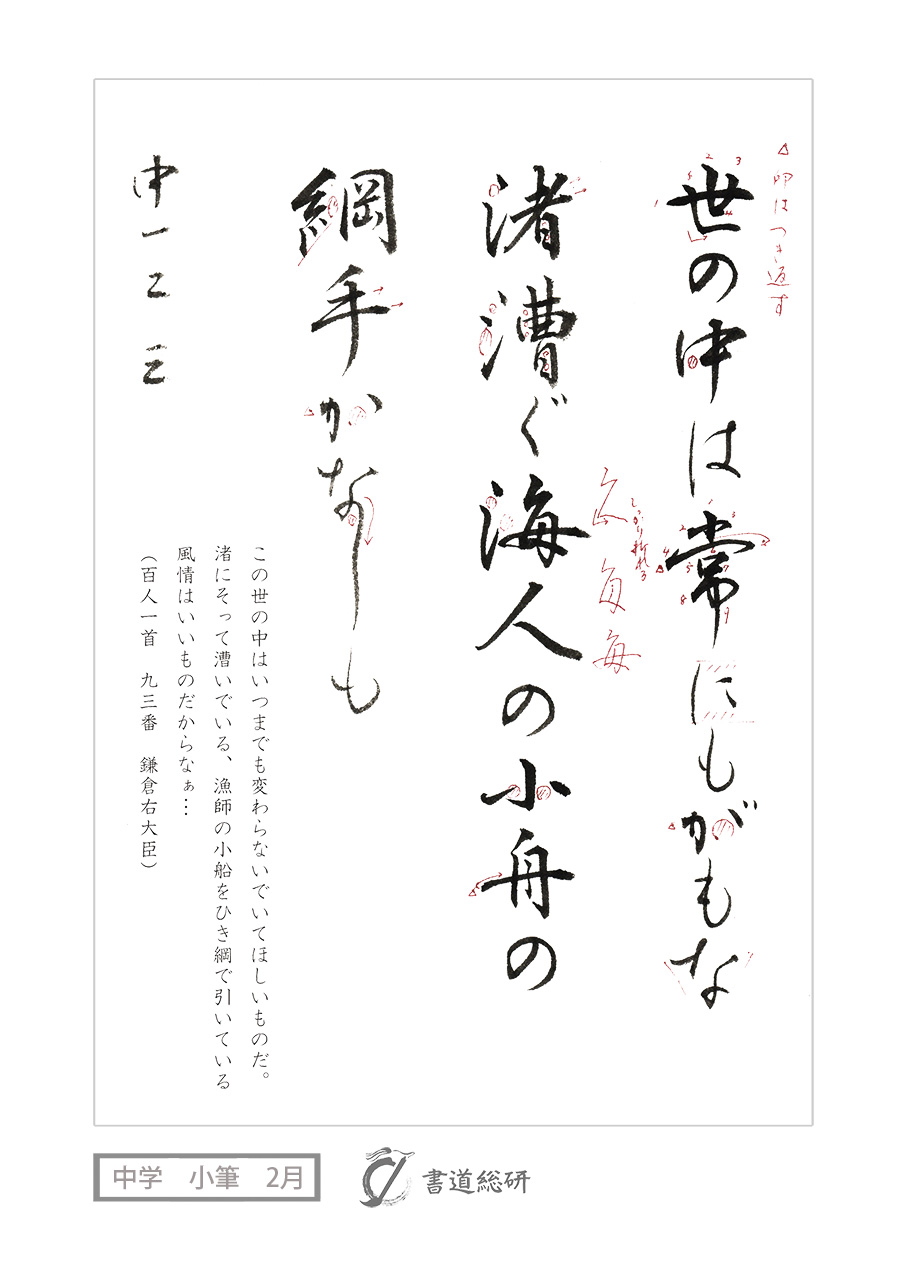 △印はつき返す
世の中は常にもがもな
しっかり折れる
渚漕ぐ海人の小舟の
綱手かなしも
中一二三
この世の中はいつまでも変わらないでいてほしいものだ。
渚にそって漕いでいる、漁師の小船をひき綱で引いている
風情はいいものだからなぁ…
(百人一首 九三番 鎌倉右大臣)
中学 小筆 2月
書道総研